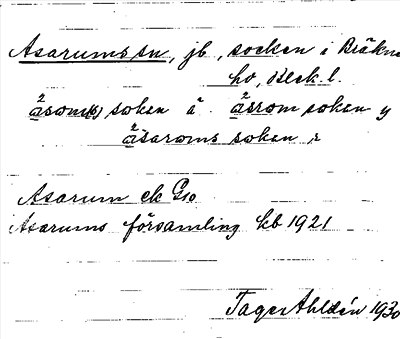 Asarums sn, jb, socken i Bräkne
hd, Blek. l.
ásom(s) soken ä. ásrom soken y
ásaroms soken r
Asarum ek G10
Asarums församling kb 1921
Tage Ahldén 1930